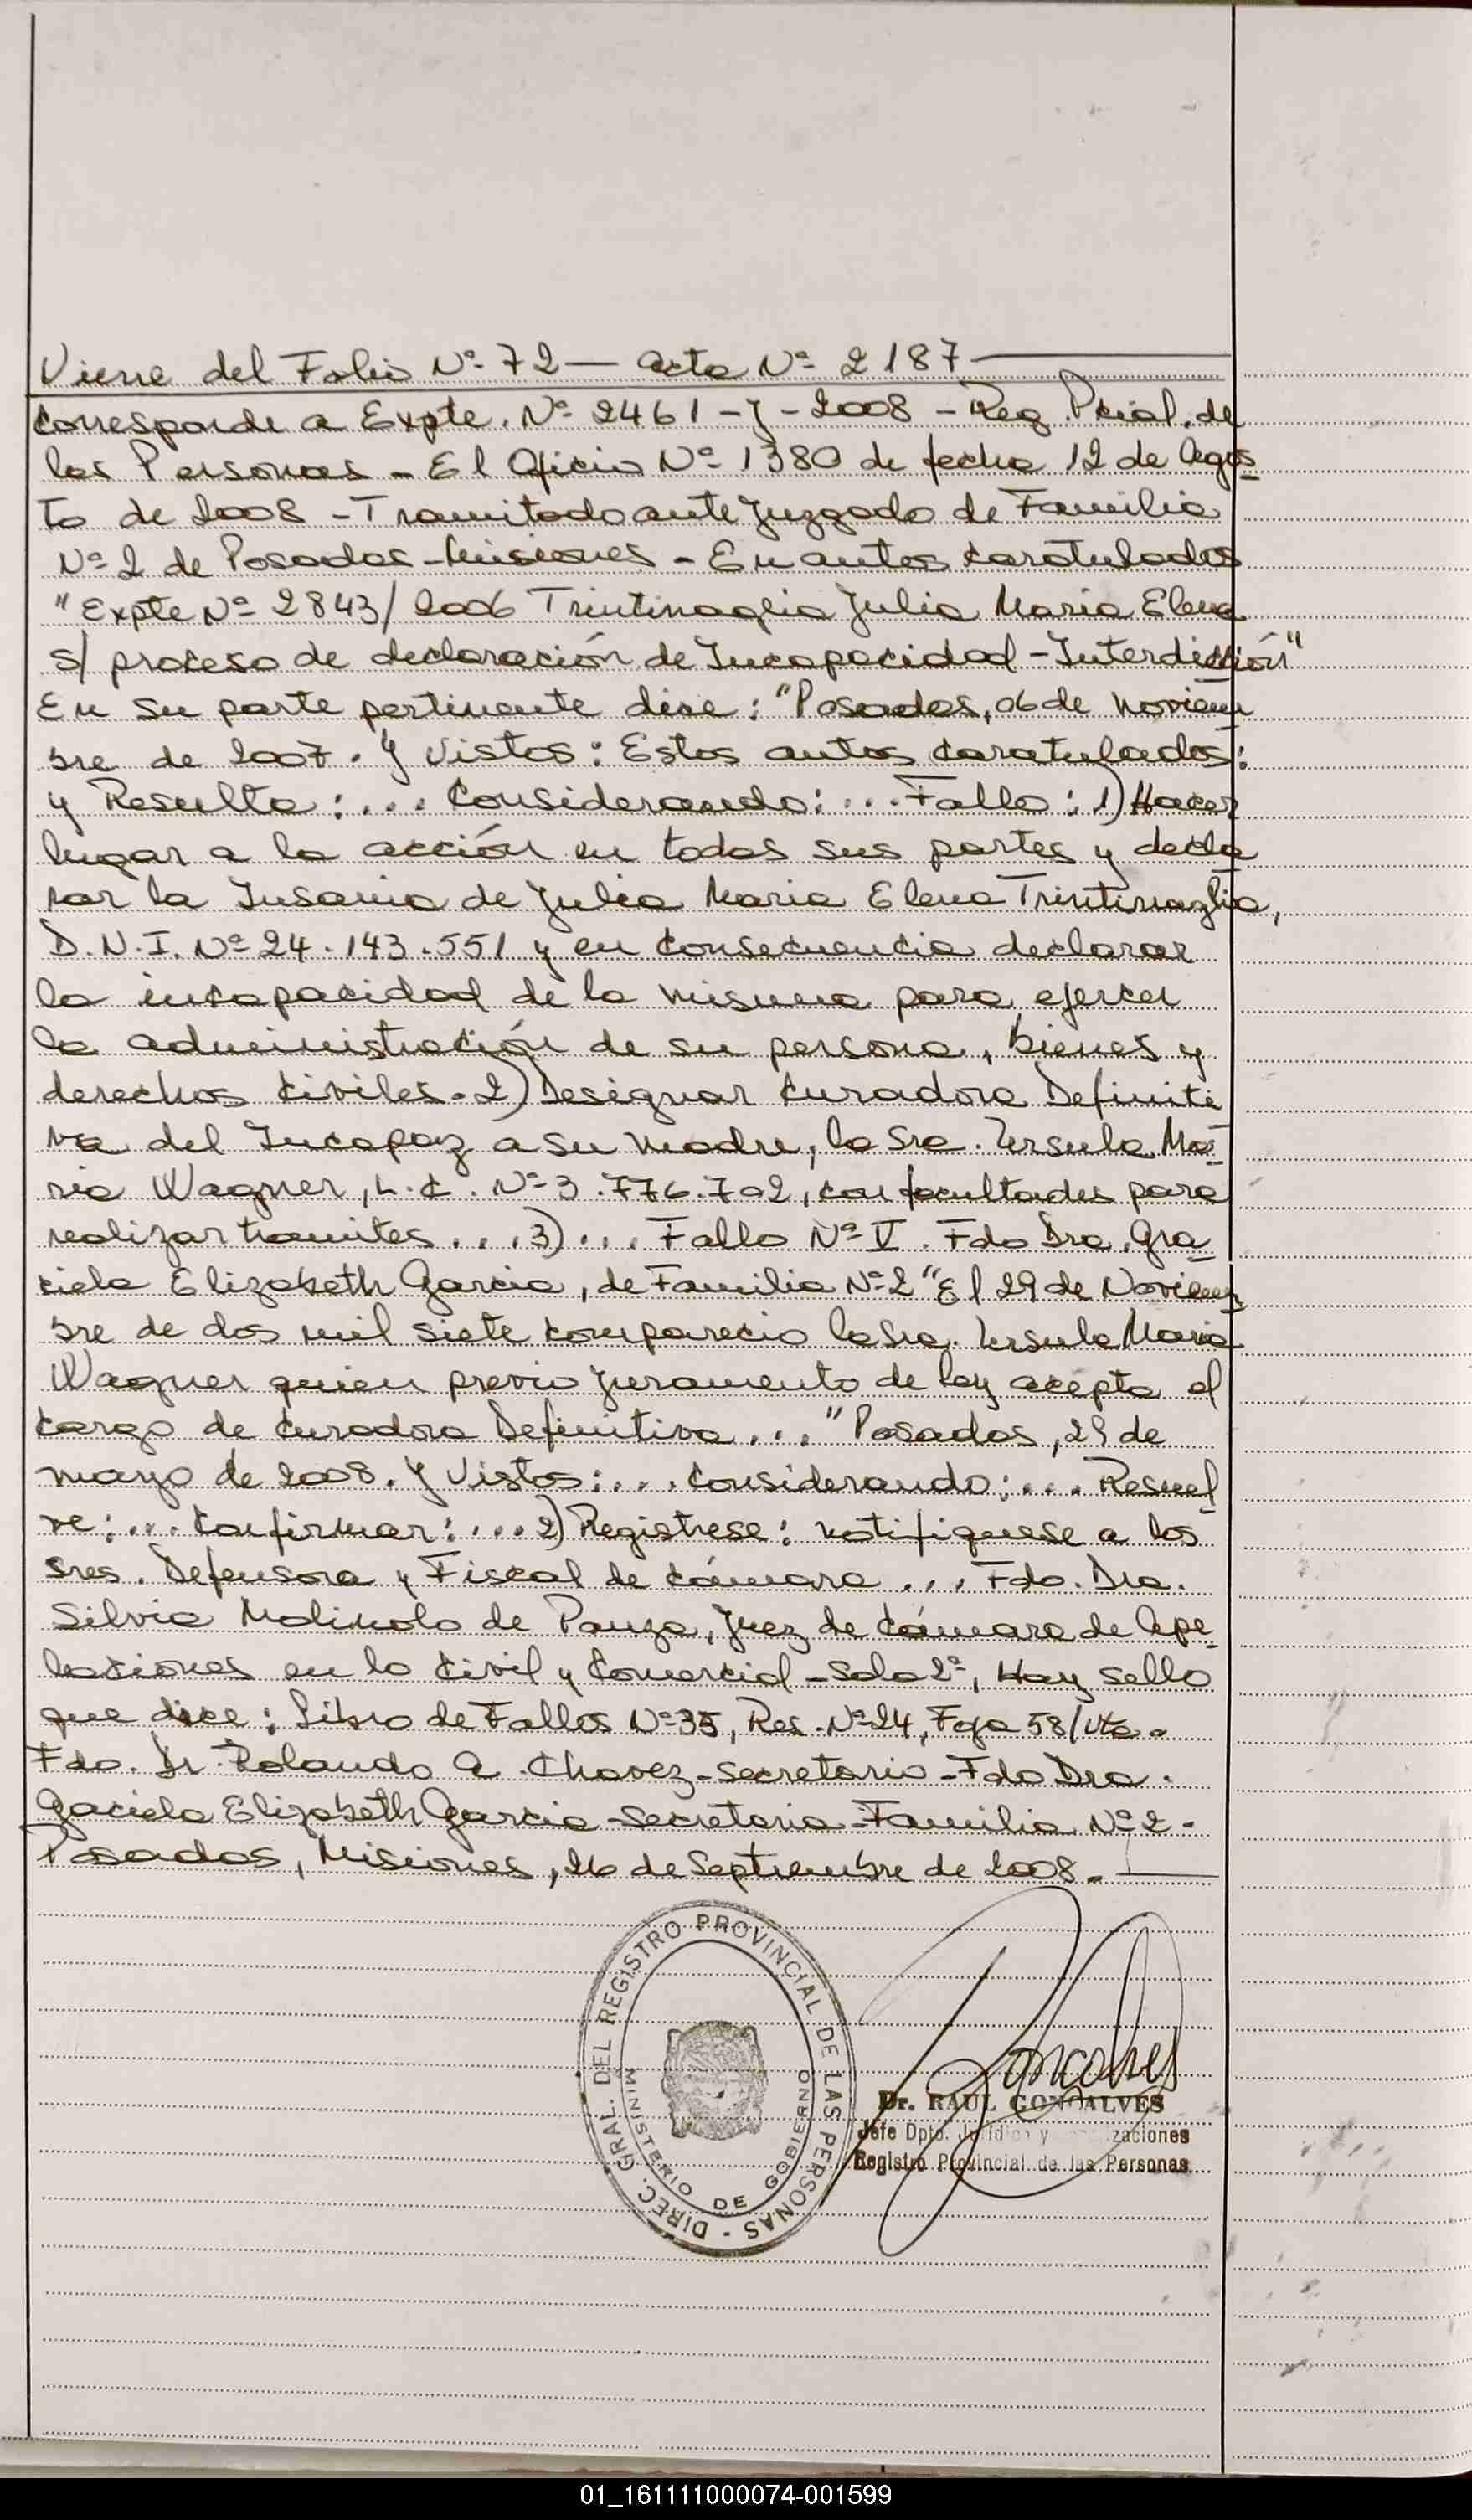 Viene del Folio Nº 72 — Acta Nº 2187
Corresponde a Expte. Nº 2461-J-2008 - Reg. Pcial. de
las Personas - El Oficio Nº 1380 de fecha 12 de Agos
to de 2008 - Tramitado ante Juzgado de Familia
Nº 2 de Posadas - Misiones - En autos caratulados
"Expte Nº 2843/2006 Trintinaglia Julia Maria Elena
s/ proceso de declaración de Incapacidad - Interdicción"
En su parte pertinente dice: "Posadas, 06 de Noviem
bre de 2007. Y Vistos: Estos autos caratulados:
y Resulta: ... Considerando: ... Fallo: 1) Hacer
lugar a la acción en todas sus partes y decla
rar la Insania de Julia Maria Elena Trintinaglia,
D.N.I. Nº 24.143.551 y en consecuencia declarar
la incapacidad de la misma para ejercer
la administración de su persona, bienes y
derechos civiles. 2) Designar Curadora Definiti
va del Incapaz a su madre, la Sra. Ursula Ma
ria Wagner, L.C. Nº 3.776.702, con facultades para
realizar tramites ... 3) ... Fallo Nº V. Fdo Dra. Gra
ciela Elizabeth Garcia, de Familia Nº 2 "El 29 de Noviem
bre de dos mil siete comparecio la Sra. Ursula Maria
Wagner quien previo juramento de ley acepta el
cargo de Curadora Definitiva ... "Posadas, 29 de
mayo de 2008. Y Vistos: ... Considerando: ... Resuel
ve: ... Confirmar: ... 2) Registrese: notifiquese a los
Sres. Defensora y Fiscal de Cámara ... Fdo. Dra.
Silvia Molinolo de Panza, Juez de Cámara de Ape
laciones en lo Civil y Comercial - Sala 2ª, Hay sello
que dice: Libro de Fallos Nº 35, Res. Nº 24, Foja 58/Vta.
Fdo. Dr. Rolando A. Chavez - Secretario - Fdo Dra.
Gaciela Elizabeth Garcia - Secretaria - Familia Nº 2.
Posadas, Misiones, 26 de Septiembre de 2008.
DIREC. GRAL. DEL REGISTRO PROVINCIAL DE LAS PERSONAS -
MINISTERIO DE GOBIERNO
Dr. RAUL GONCALVES
Jefe Dpto. Jurídico y
Registro Provincial de las Personas
01_161111000074-001599